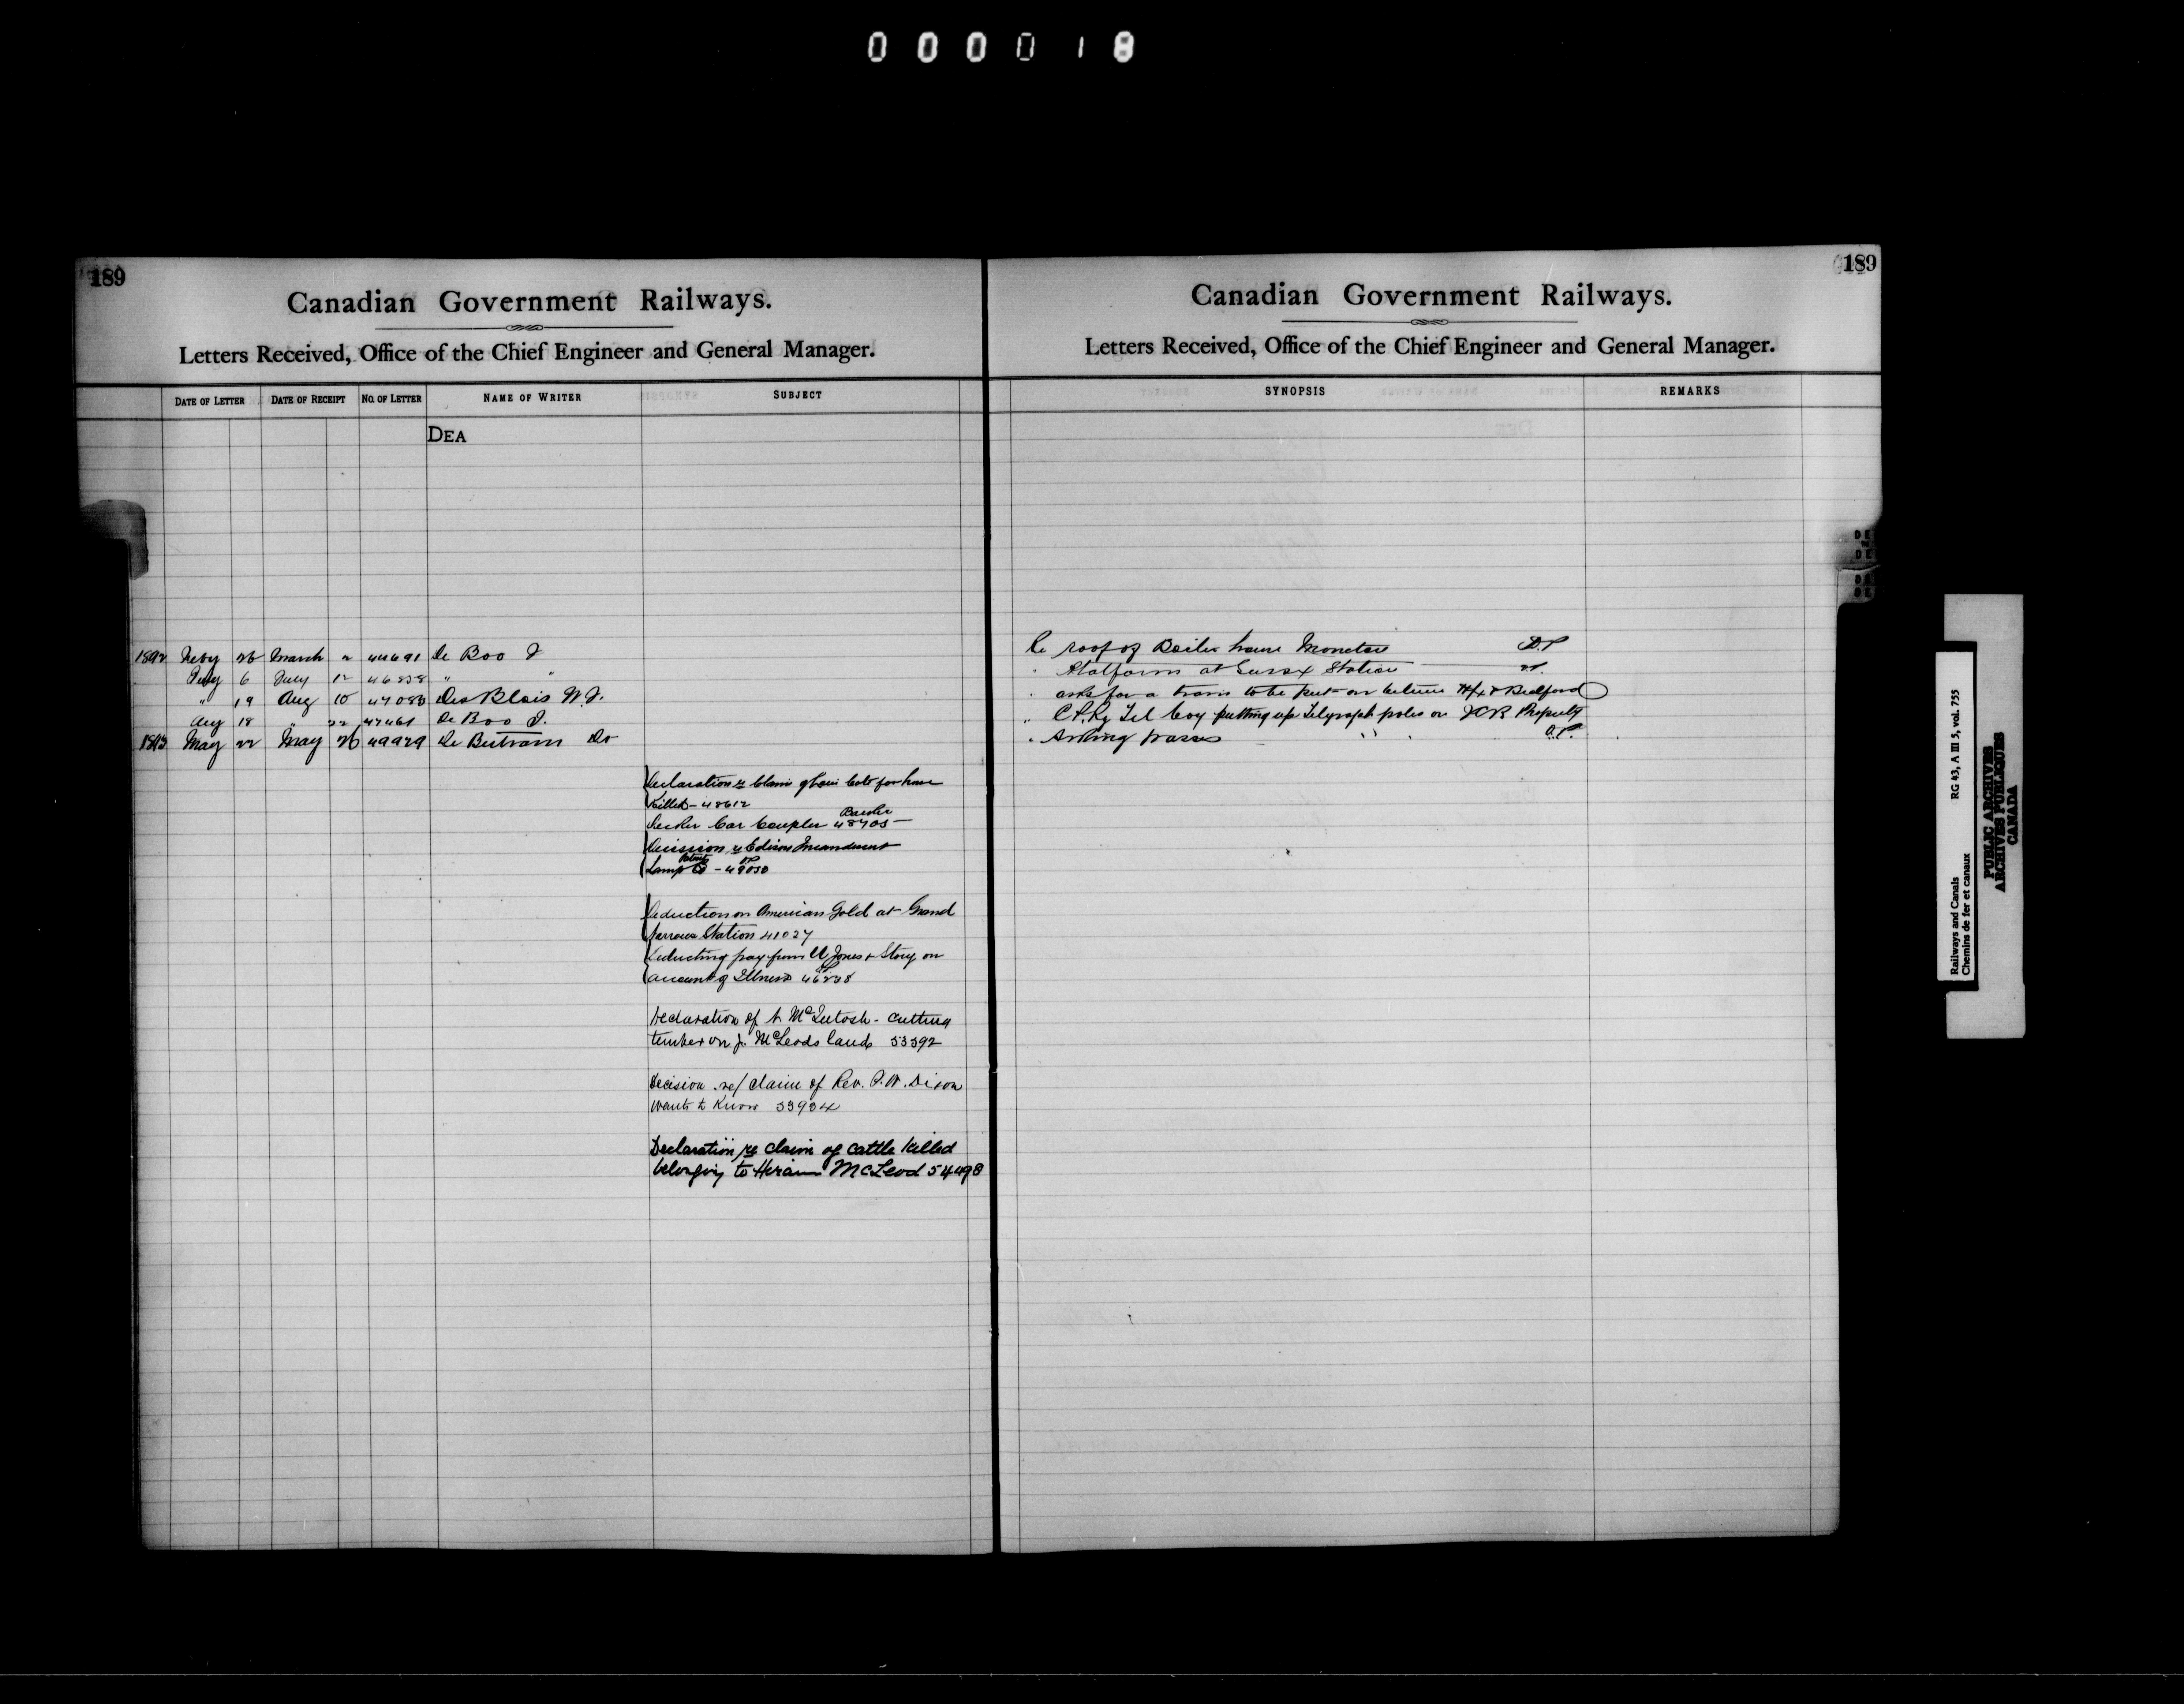 000018
189
Canadian Government Railways.
Letters Received, Office of the Chief Engineer and General Manager.
DATE OF LETTER DATE OF RECEIPT NO. OF LETTER NAME OF WRITER SUBJECT
DEA
1892 Feby 26 March 2 44691 De Boo J
July 6 July 12 46838 " "
" 19 Aug 10 47083 Des Blois W.J.
Aug 18 " 22 47461 De Boo J.
1893 May 22 May 26 49929 De Bertram Dr
Declaration re Claim of Cote for
Killed - 48612
Barker
Decker Car Coupler 48705 -
Decision re Edison Incandescent
Patent
Lamp Co - 49050
Deduction on American Gold at Grand
Narrows Station 41027
Deducting pay from Jones & Story on
account of Illness 46238
Declaration of McIntosh - cutting
timber on J. McLeods land 53392
Decision re/ claim of Rev. Dixon
wants to know 53934
Declaration re claim of cattle killed
belonging to Hiram McLeod 54498
189
Canadian Government Railways.
Letters Received, Office of the Chief Engineer and General Manager.
SYNOPSIS REMARKS
Re roof of Boiler house Moncton D.P
" Platform at Sussex Station
" asks for a train to be put on between Hfx & Bedford
" C.P.Ry Tel Coy putting up Telegraph poles on ICR Property
" Asking passes
Railways and Canals RG 43, A III 5, vol. 755
Chemins de fer et canaux
PUBLIC ARCHIVES
ARCHIVES PUBLIQUES
CANADA